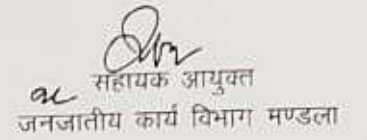 सहायक आयुक्त
जनजातीय कार्य विभाग मण्डला